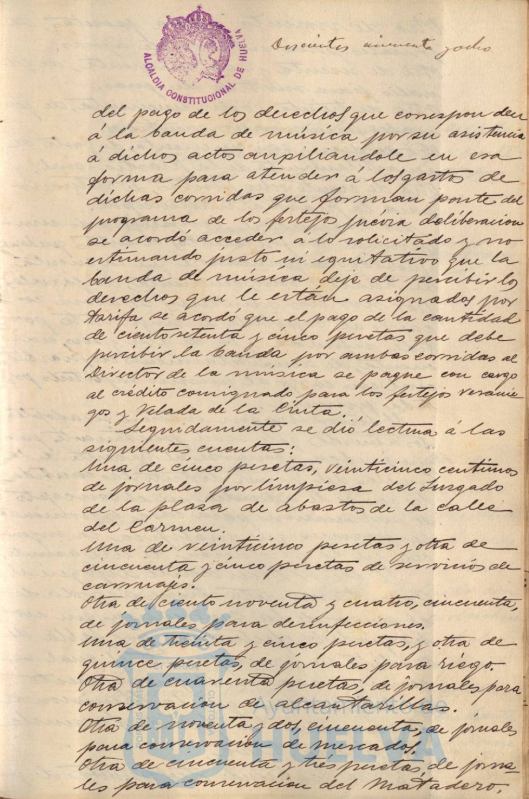 ALCALDIA CONSTITUCIONAL DE HUELVA
Doscientos cincuenta y ocho
del pago de los derechos que corresponden
á la banda de música por su asistencia
á dichos actos anpiliandole en esa
forma para aténder á los gastos de
dichas corridas que forman parte del
programa de los fertejos y deliberacion
se acordó acceder á lo solicitado y no
estimando justo ni equitativo que la
banda de música deje de percibir los
derechos que le están asignados por
tarifa se acordó que el pago de la cantidad
de ciento setenta y cinco pesetas que debe
percibir la banda por ambas corridas al
Director de la música se pague con cargo
al crédito consignado para los fertejos veranie
gos y Velada de la Cinta.
Seguidamente se dió lectura á las
siguientes cuentas:
Una de cinco pesetas, veinticinco centimos
de jornales por limpiesa del Juzgado
de la plaza de abastos de la calle
del Carmen.
Una de veinticinco pesetas y otra de
cincuenta y cinco pesetas de servicios de
carruajes.
Otra de ciento noventa y cuatro, cincuenta,
de jornales para desinfecciones.
Una de treinta y cinco pesetas, y otra de
quince pesetas, de jornales para riego.
Otra de cuarenta pesetas, de jornales para
conservacion de alcantarillas.
Otra de noventa y dos, cincuenta, de jornales
para conservacion de mercados.
Otra de cincuenta y tres pesetas, de jorna-
les para conservacion del Matadero.
HUELVA